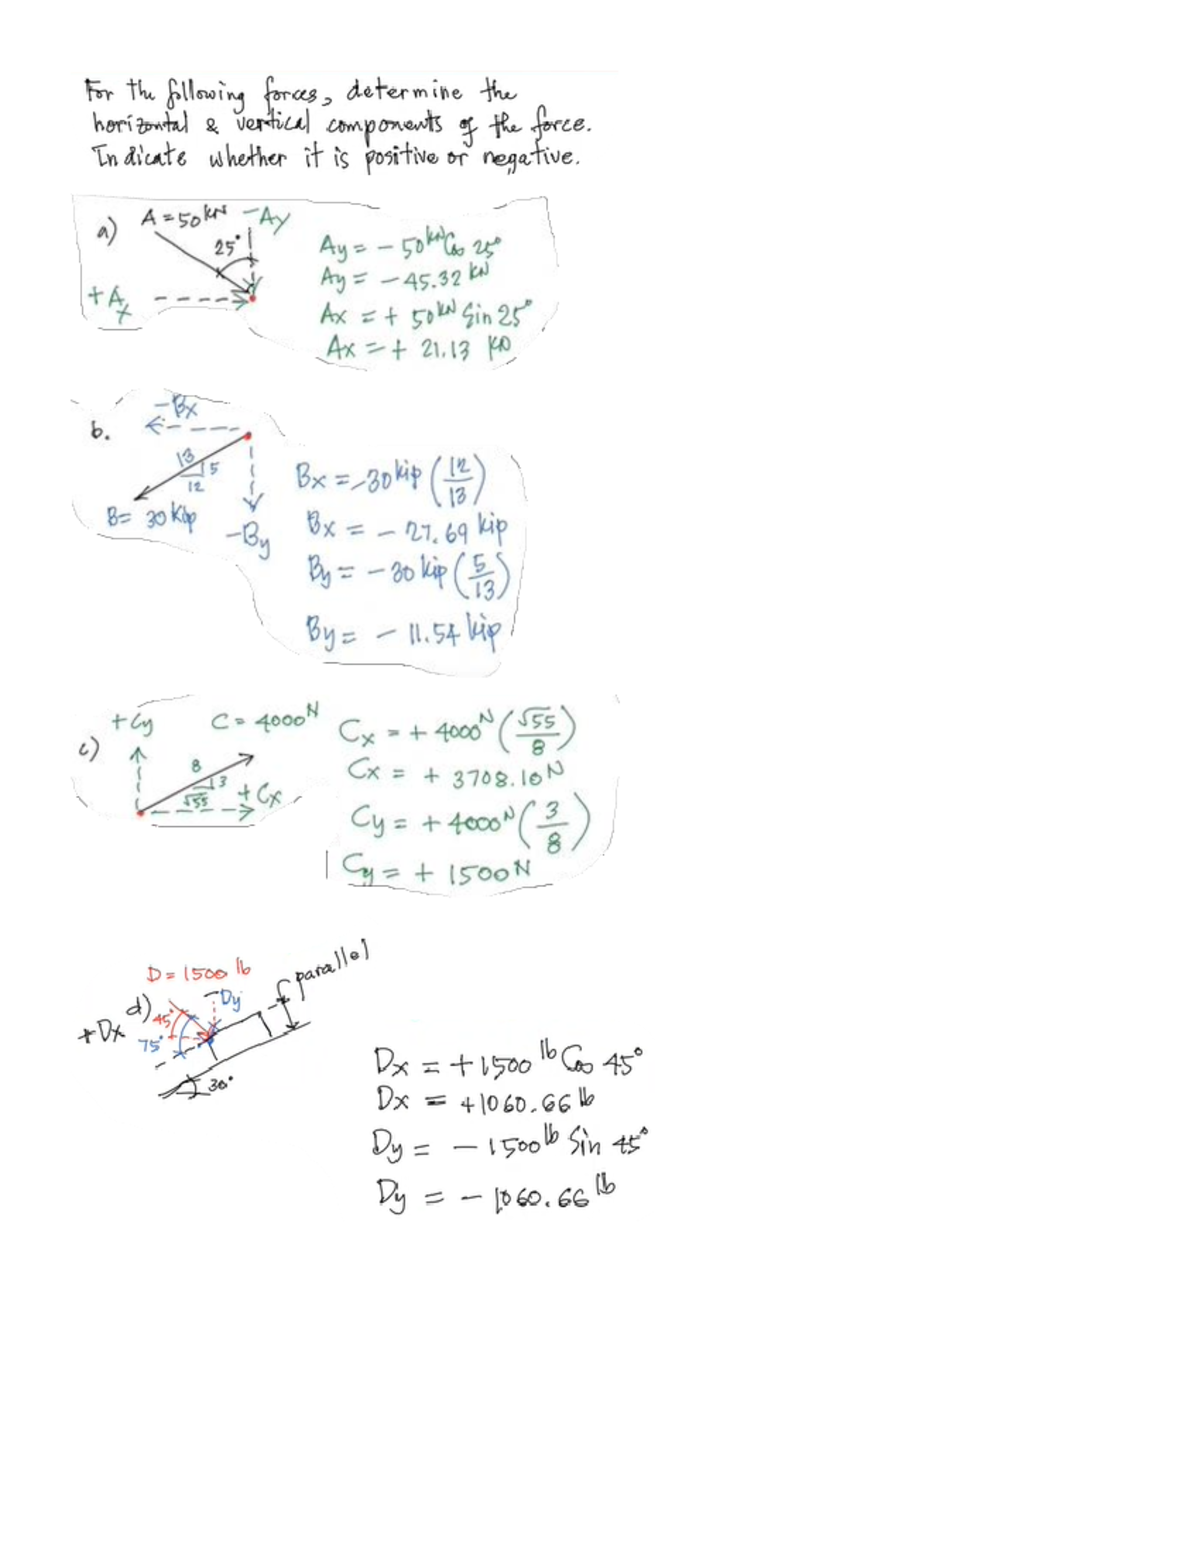 For the following forces, determine the
horizontal & vertical components of the force.
Indicate whether it is positive or negative.
a) A = 50 kN -Ay
25°
+Ax
Ay = - 50 kN Cos 25°
Ay = - 45.32 kN
Ax = + 50 kN Sin 25°
Ax = + 21.13 kN
b.
-Bx
13
5
12
B = 30 kip
-By
Bx = -30 kip (12/13)
Bx = - 27.69 kip
By = - 30 kip (5/13)
By = - 11.54 kip
c)
+Cy C = 4000 N
8
3
√55
+Cx
Cx = + 4000 N (√55/8)
Cx = + 3708.10 N
Cy = + 4000 N (3/8)
Cy = + 1500 N
d)
D = 1500 lb
parallel
-Dy
45°
+Dx
75°
30°
Dx = + 1500 lb Cos 45°
Dx = +1060.66 lb
Dy = - 1500 lb Sin 45°
Dy = - 1060.66 lb